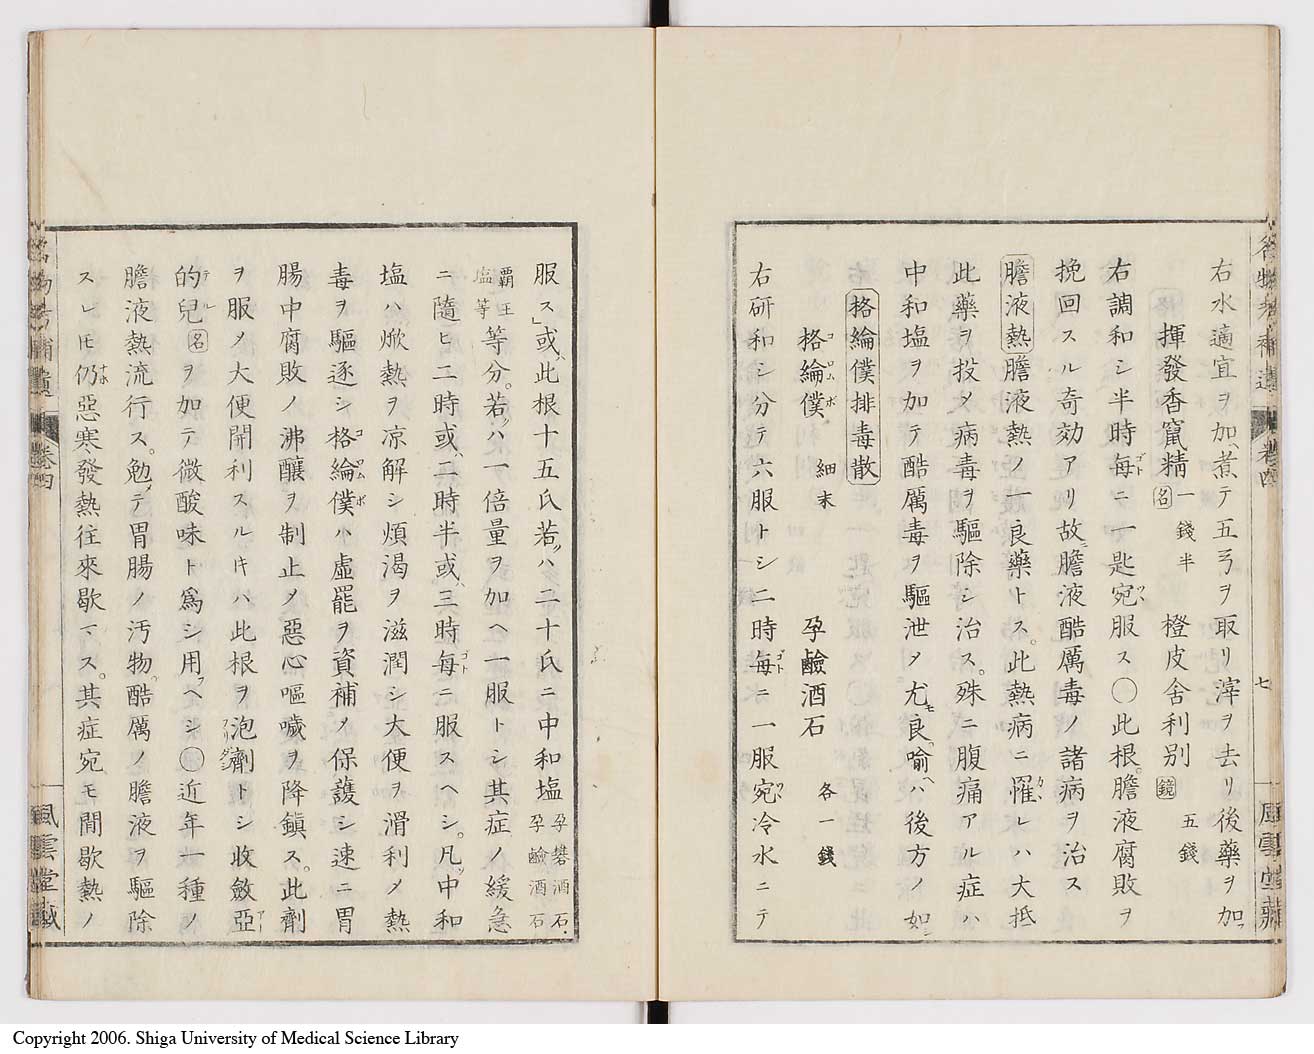 名物考補遺 卷四 七 風雲堂藏
右水適宜ヲ加ヘ煮テ五弓ヲ取リ滓ヲ去リ後藥ヲ加フ
揮發香竄精名 一錢半 橙皮舍利別鏡 五錢
右調和シ半時毎ゴトニ一匙宛ツヽ服ス〇此根膽液腐敗ヲ
挽回スル奇効アリ故ニ膽液酷厲毒ノ諸病ヲ治ス
膽液熱 膽液熱ノ一良藥トス。此熱病ニ罹カヽレハ大抵
此藥ヲ投メ病毒ヲ驅除シ治ス。殊ニ腹痛アル症ハ
中和塩ヲ加テ酷厲毒ヲ驅泄メ尤モ良シ喻ヘハ後方ノ如シ
格綸僕排毒散
格綸僕コロムボ 細末 孕鹼酒石 各一錢
右研和シ分テ六服トシ二時毎ゴトニ一服宛ツヽ冷水ニテ
服ス」或ハ此根十五氏若クハ二十氏ニ中和塩孕礬酒石・孕鹼酒石
覇王塩等等分。若クハ一倍量ヲ加ヘ一服トシ其症ノ緩急
ニ隨ヒ二時或ハ二時半或ハ三時毎ゴトニ服スヘシ。凡ソ中和
塩ハ焮熱ヲ凉解シ煩渇ヲ滋潤シ大便ヲ滑利メ熱
毒ヲ驅逐シ格綸僕コロムボハ虛罷ヲ資補メ保護シ速ニ胃
腸中腐敗ノ沸釀ヲ制止メ惡心嘔噦ヲ降鎭ス。此劑
ヲ服メ大便開利スルキハ此根ヲ泡劑トシ收斂亞
的兒名ヲ加テ微酸味ト爲シ用フヘシ〇近年一種ノ
膽液熱流行ス。勉メテ胃腸ノ汚物酷厲ノ膽液ヲ驅除
スレモ仍ナホ惡寒發熱往來歇マス。其症宛モ間歇熱ノ
名物考補遺 卷四 風雲堂藏
Copyright 2006. Shiga University of Medical Science Library